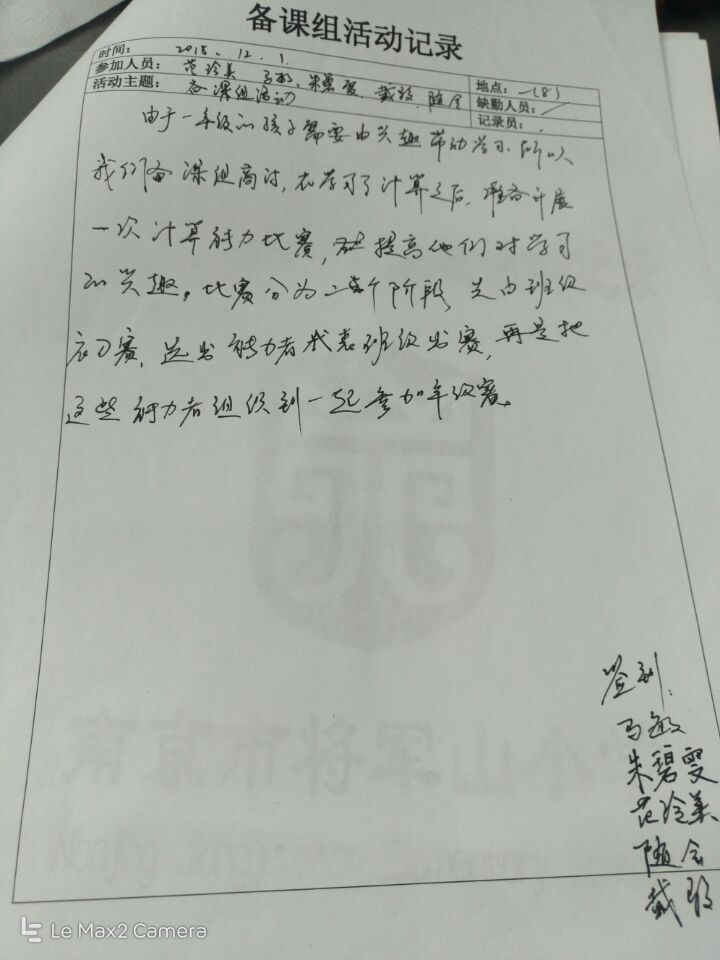 备课组活动记录
时间： 2018．12．1．
参加人员： 范玲美 马敏、朱碧雯、戴 、随会 地点：一(8)
活动主题： 备课组活动 缺勤人员：
记录员：
由于一年级的孩子需要由兴趣带动学习，所以
我们备课组商讨，在学习了计算之后，准备开展
一次计算能力比赛，提高他们对学习
的兴趣。比赛分为二个阶段，先由班级
初赛，选出能力者代表班级出赛，再是把
这些能力者组织到一起参加年级赛。
签到：
马敏
朱碧雯
范玲美
随会
戴
南京市将军山小
Le Max2 Camera